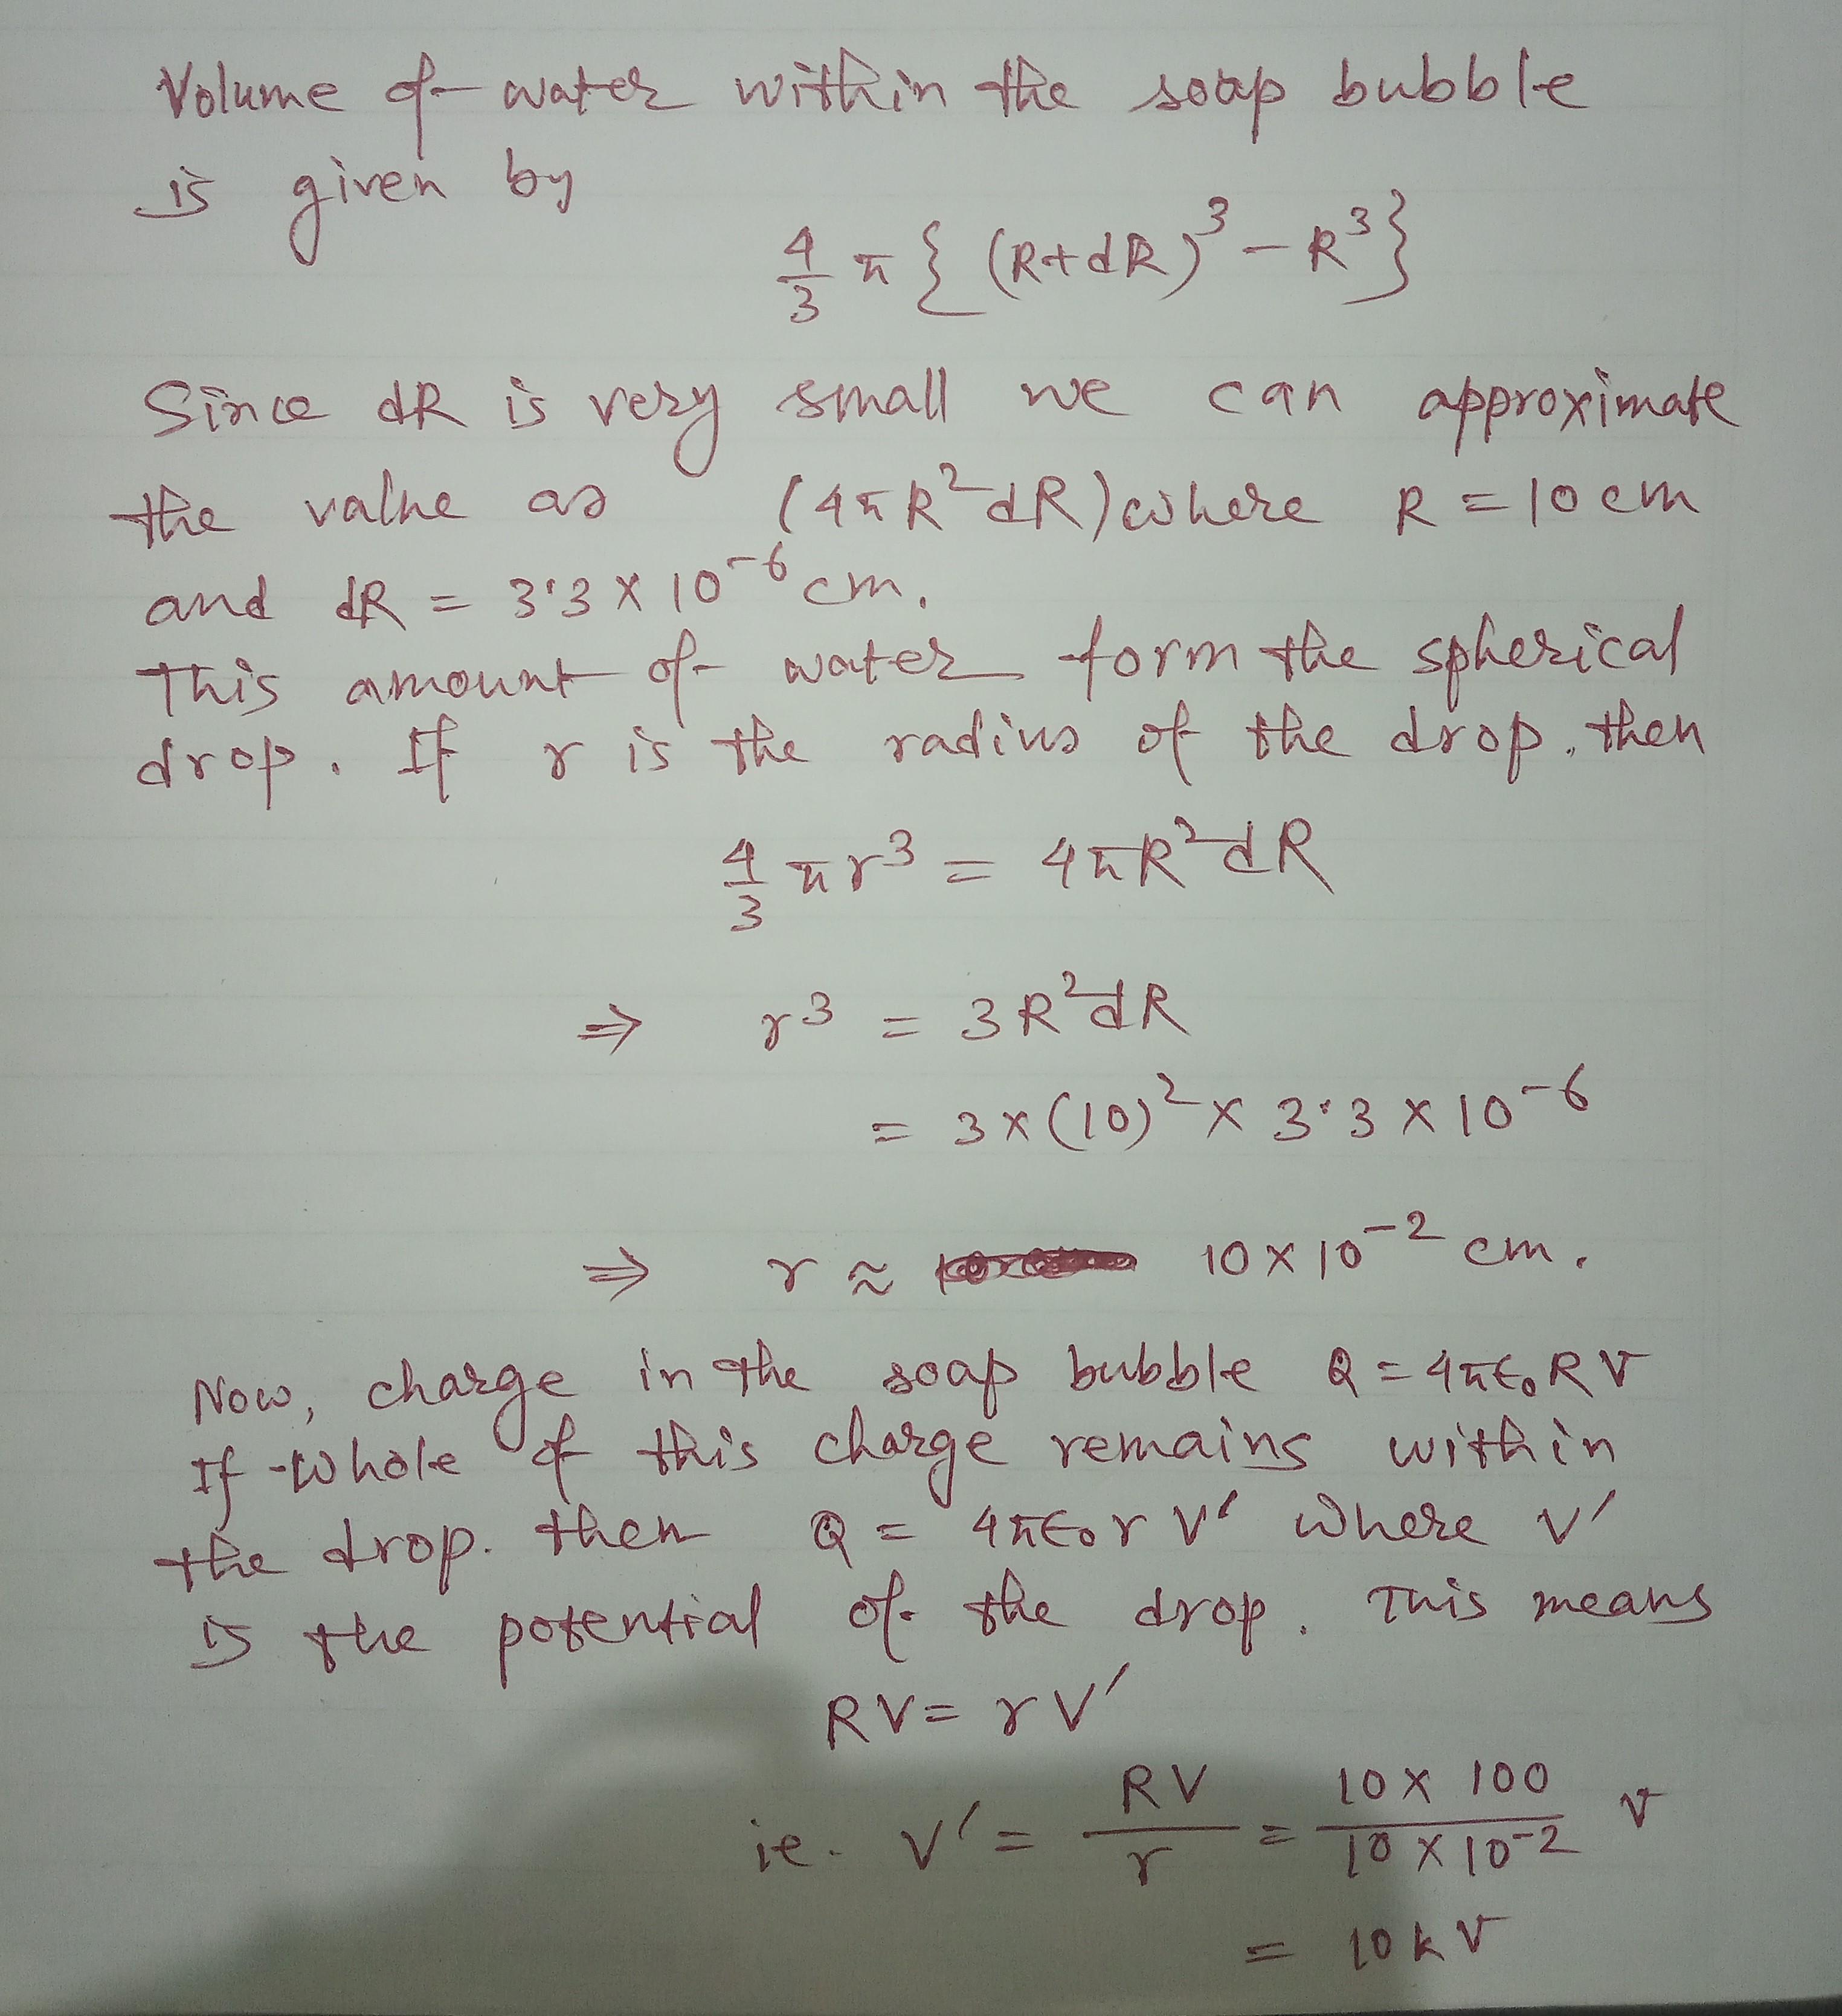 Volume of water within the soap bubble
is given by
4/3 π { (R+dR)³ − R³}
Since dR is very small we can approximate
the value as (4πR²dR) where R = 10 cm
and dR = 3·3 × 10⁻⁶ cm.
This amount of water form the spherical
drop. If r is the radius of the drop. then
4/3 πr³ = 4πR²dR
⇒ r³ = 3R²dR
= 3×(10)² × 3·3 × 10⁻⁶
⇒ r ≈ 10×10⁻² cm.
Now, charge in the soap bubble Q = 4π€₀RV
If whole of this charge remains within
the drop. then Q = 4π€₀rV′ where V′
is the potential of the drop. This means
RV = rV′
ie. V′ = RV/r = 10 × 100 / 10 × 10⁻² V
= 10 kV